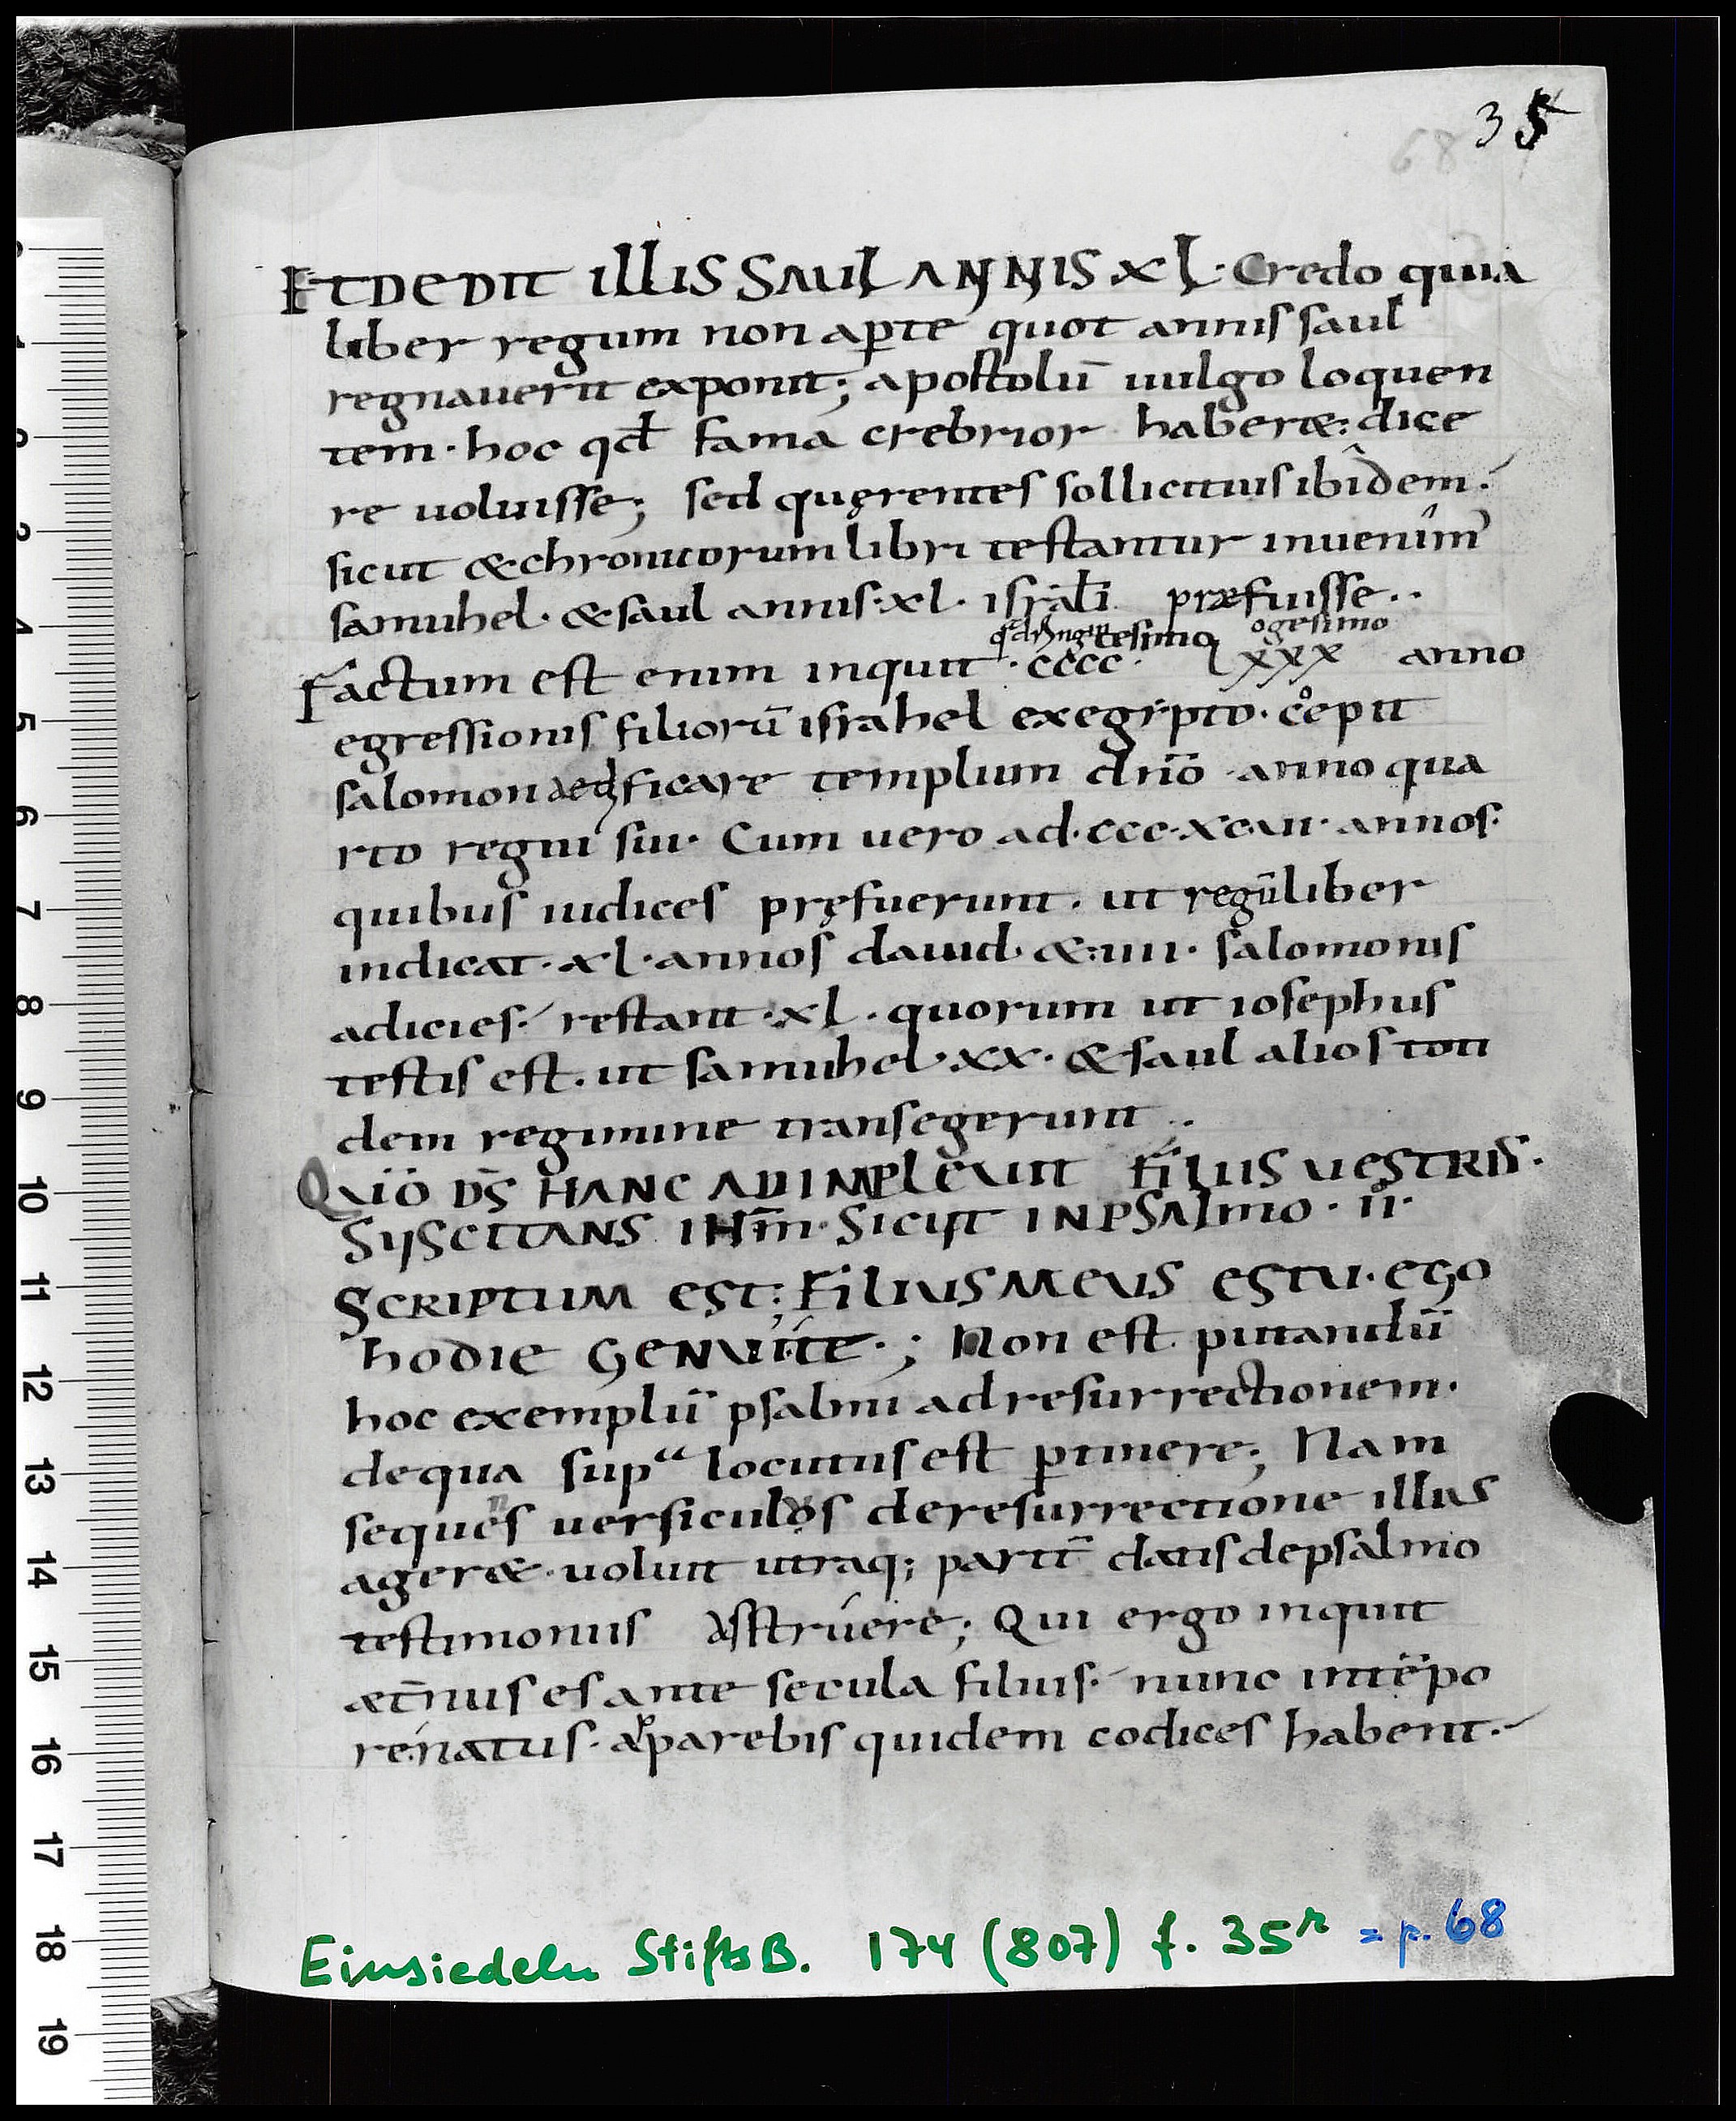 35
68
ET DEDIT ILLIS SAUL ANNIS XL. Credo quia
liber regum non aperte quot annis saul
regnauerit exponit; apostolū uulgo loquen
tem. hoc qđ fama crebrior haberet: dice
re uoluisse; sed quęrentes sollicitius ibidem.
sicut & chronicorum libri testantur inuenim᾽
samuhel. & saul annis. xl. israhli praefuisse..
ogesimo
Factum est enim inquit .cccc. xxx anno
egressionis filiorū israhel exegypto. coepit
salomon aedificare templum dnō. anno qua
rto regni sui. Cum uero ad. ccc. xc.uii. annos.
quibus iudices pręfuerunt. ut regū liber
indicat. xl. annos dauid. &. iiii. salomonis
adicies. restant. xl. quorum ut iosephus
testis est. ut samuhel. xx. & saul alios toti
dem regimine transegerunt..
QUIO DS̄ HANC ADIMPLEUIT FILIIS UESTRIS.
SUSCITANS IHM̄. SICUT IN PSALMO. II.
SCRIPTUM EST; FILIUS MEUS ES TU. EGO
HODIE GENUI TE.; Non est putandū
hoc exemplū psalmi ad resurrectionem.
de qua supᵃ locutus est ꝑtinere; Nam
sequens uersiculos de resurrectione illius
ageret. uoluit utraq; partē datis de psalmo
testimoniis astruere; Qui ergo inquit
aet̄nus es ante secula filius. nunc in tēpo
re natus. apparebis quidem codices habent.
Einsiedeln StiftsB. 174 (807) f. 35ʳ = p. 68